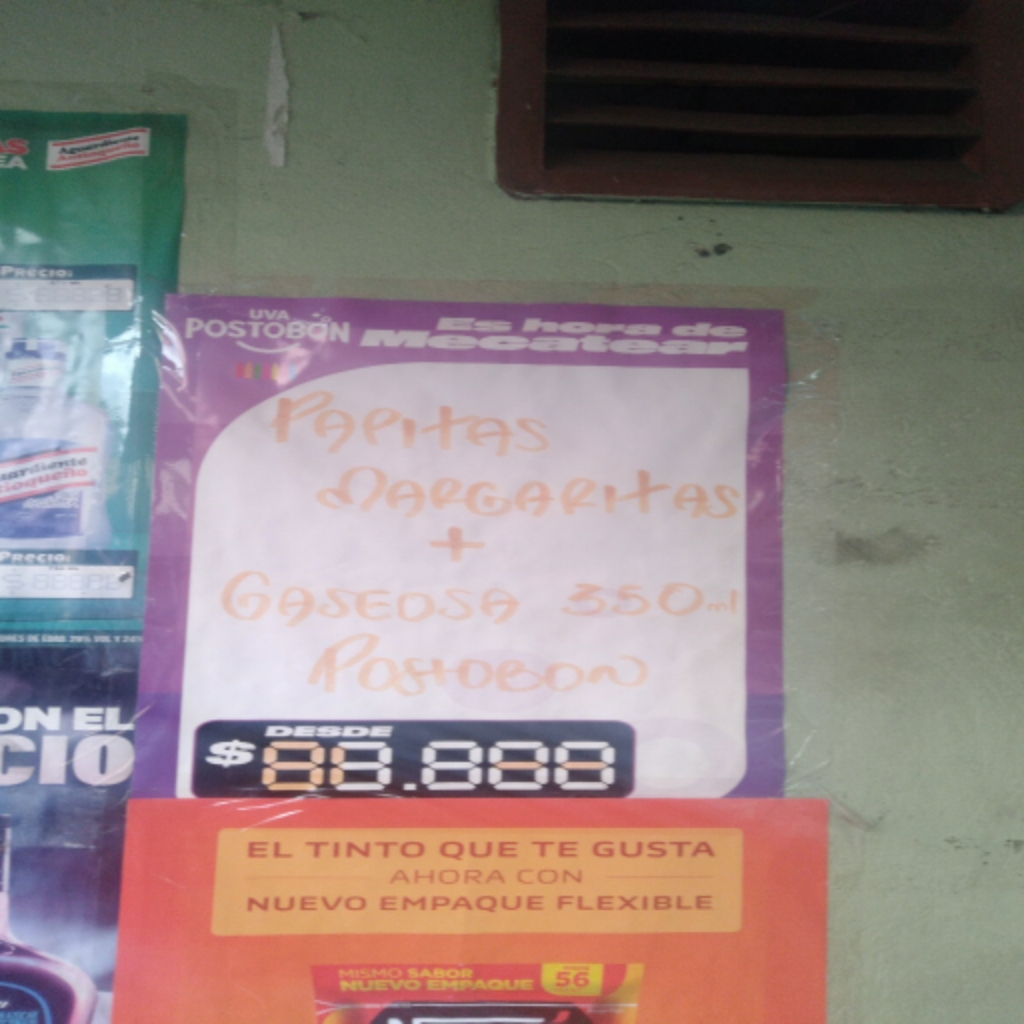 AS
EA
Aguardiente
Antioqueño
PRECIO:
uardiente
ioqueño
PRECIO:
ON EL
CIO
UVA
POSTOBÓN
Es hora de
Mecatear
PAPITAS
MARGARITAS
+
GASEOSA 350ml
POSTOBON
DESDE
$
EL TINTO QUE TE GUSTA
AHORA CON
NUEVO EMPAQUE FLEXIBLE
MISMO SABOR
NUEVO EMPAQUE
56